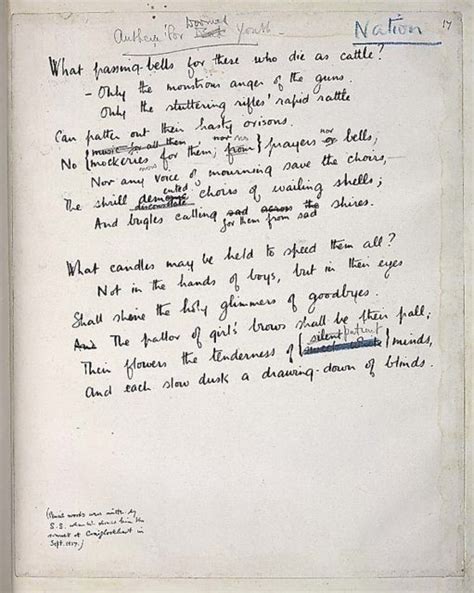 Doomed
Anthem for Dead Youth
Nation
17
What passing-bells for these who die as cattle?
- Only the monstrous anger of the guns.
Only the stuttering rifles' rapid rattle
Can patter out their hasty orisons.
music for all them, nor no nor
No { mockeries for them; from } prayers or bells;
Nor any voice of mourning save the choirs,
ented
The shrill choirs of wailing shells;
disconsolate
And bugles calling sad across the shires.
for them from sad
What candles may be held to speed them all?
Not in the hands of boys, but in their eyes
Shall shine the holy glimmers of goodbyes.
And The pallor of girls' brows shall be their pall;
silent patient
Their flowers the tenderness of { } minds,
And each slow dusk a drawing-down of blinds.
(Pencil words were written by
S.S. when W. showed him the
sonnet at Craiglockhart in
Sept. 1917.)